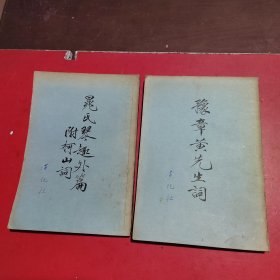 晁氏琴趣外篇
附柯山詞
豫章黃先生詞